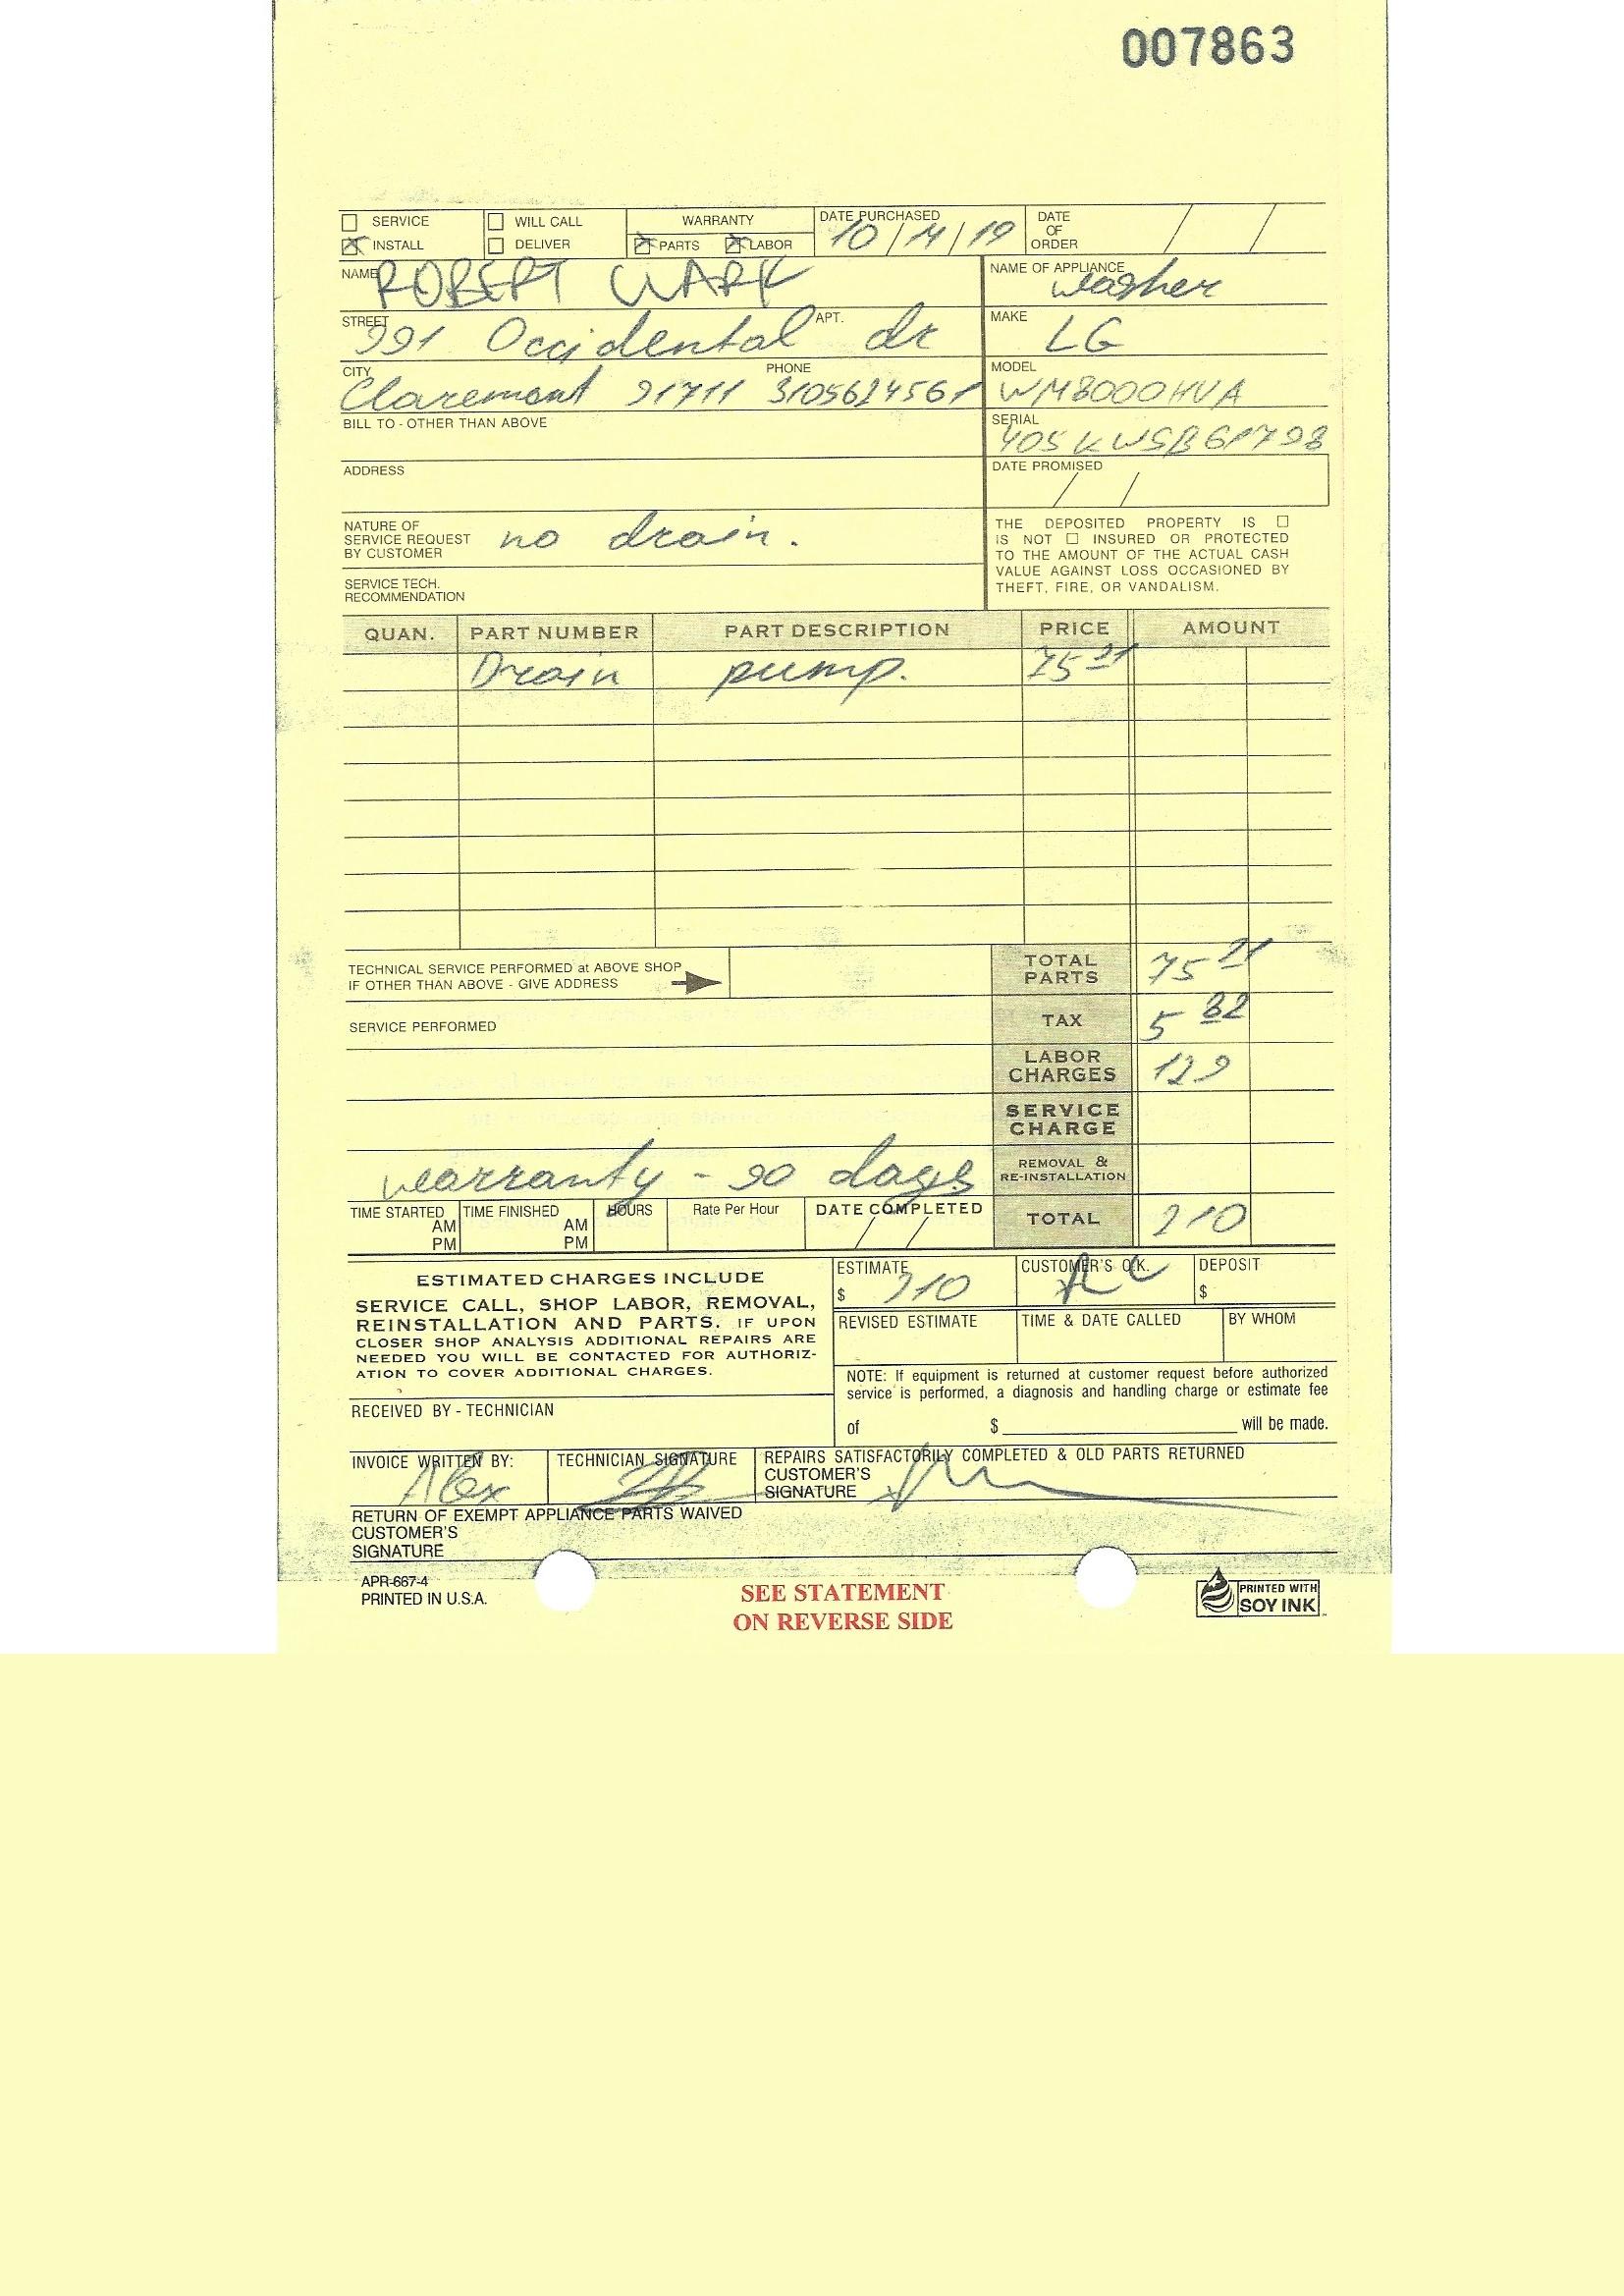 007863
SERVICE WILL CALL WARRANTY DATE PURCHASED DATE OF ORDER
INSTALL DELIVER PARTS LABOR 10/14/19
NAME ROBERT CLARK NAME OF APPLIANCE washer
STREET 991 Occidental APT. dr MAKE LG
CITY Claremont 91711 PHONE 3105624561 MODEL WM8000HVA
BILL TO - OTHER THAN ABOVE SERIAL 405KWSB61798
ADDRESS DATE PROMISED / /
NATURE OF
SERVICE REQUEST no drain.
BY CUSTOMER
THE DEPOSITED PROPERTY IS
IS NOT INSURED OR PROTECTED
TO THE AMOUNT OF THE ACTUAL CASH
VALUE AGAINST LOSS OCCASIONED BY
THEFT, FIRE, OR VANDALISM.
SERVICE TECH.
RECOMMENDATION
QUAN. PART NUMBER PART DESCRIPTION PRICE AMOUNT
Drain pump. 75 21
TECHNICAL SERVICE PERFORMED at ABOVE SHOP
IF OTHER THAN ABOVE - GIVE ADDRESS
TOTAL PARTS 75 21
SERVICE PERFORMED TAX 5 82
LABOR CHARGES 129
SERVICE CHARGE
warranty - 90 days REMOVAL & RE-INSTALLATION
TIME STARTED AM PM TIME FINISHED AM PM HOURS Rate Per Hour DATE COMPLETED / / TOTAL 210
ESTIMATED CHARGES INCLUDE
SERVICE CALL, SHOP LABOR, REMOVAL,
REINSTALLATION AND PARTS. IF UPON
CLOSER SHOP ANALYSIS ADDITIONAL REPAIRS ARE
NEEDED YOU WILL BE CONTACTED FOR AUTHORIZ-
ATION TO COVER ADDITIONAL CHARGES.
ESTIMATE $ 210 CUSTOMER'S O.K. RC DEPOSIT $
REVISED ESTIMATE TIME & DATE CALLED BY WHOM
NOTE: If equipment is returned at customer request before authorized
service is performed, a diagnosis and handling charge or estimate fee
of $ will be made.
RECEIVED BY - TECHNICIAN
INVOICE WRITTEN BY: Alex TECHNICIAN SIGNATURE REPAIRS SATISFACTORILY COMPLETED & OLD PARTS RETURNED
CUSTOMER'S
SIGNATURE
RETURN OF EXEMPT APPLIANCE PARTS WAIVED
CUSTOMER'S
SIGNATURE
APR-667-4
PRINTED IN U.S.A.
SEE STATEMENT
ON REVERSE SIDE
PRINTED WITH
SOY INK